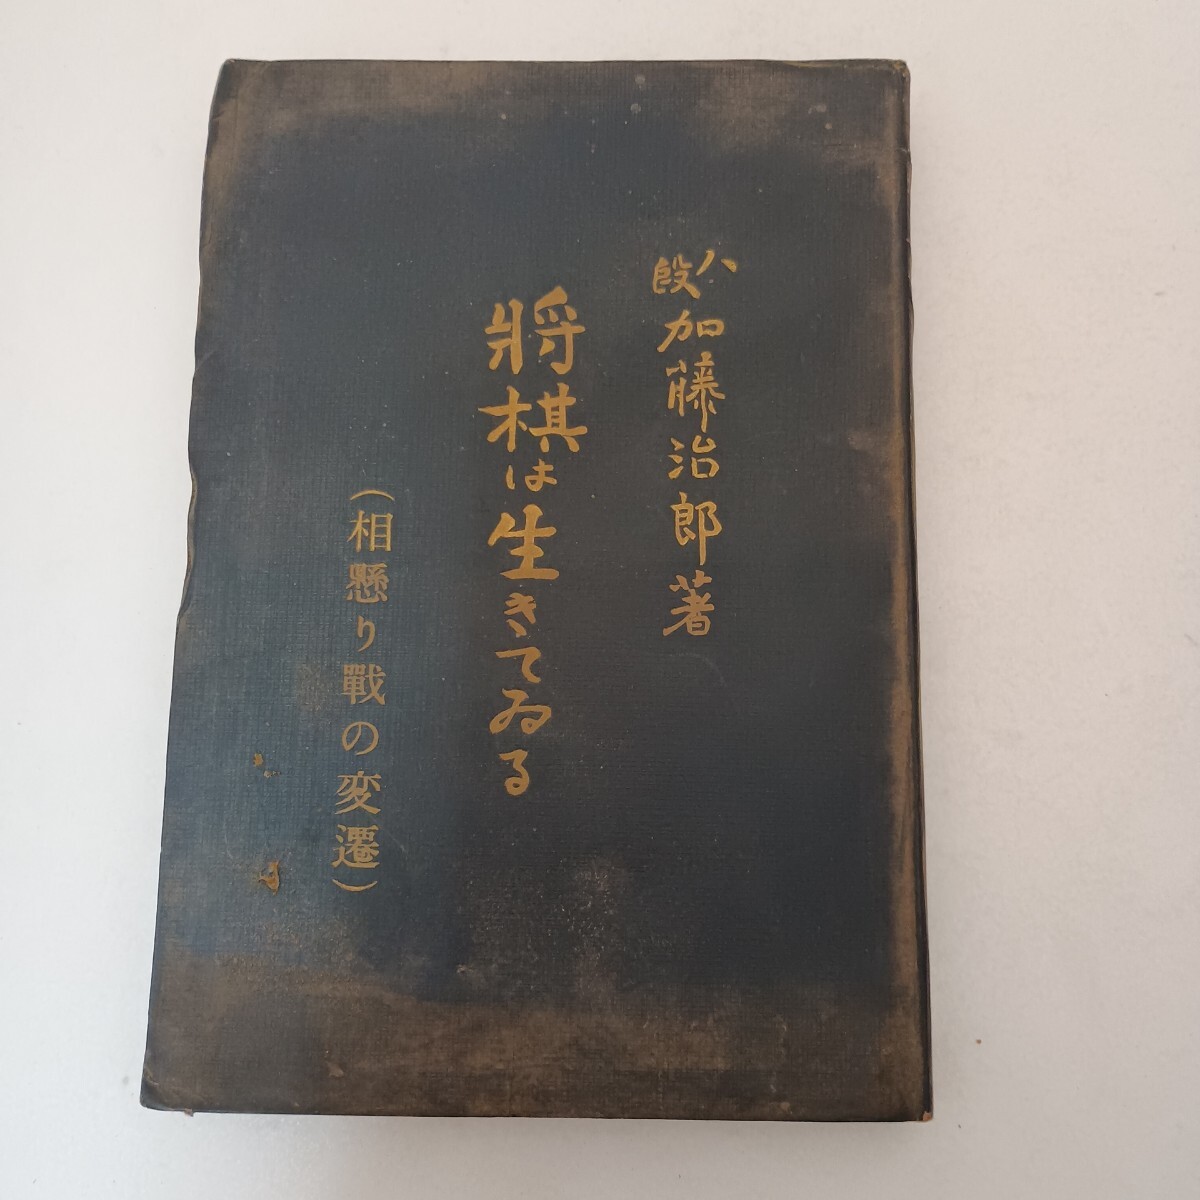 八段加藤治郎著
將棋は生きてゐる
（相懸り戰の変遷）